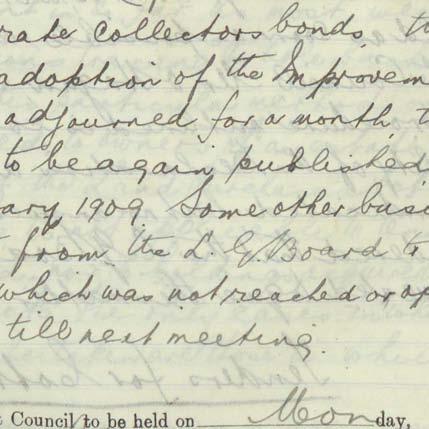 rate collectors bonds, t
adoption of the Improvem
adjourned for a month, t
to be again published
ary 1909 Some other busi
from the L. G. Board to
which was not reached or op
till next meeting.
Council to be held on Monday,